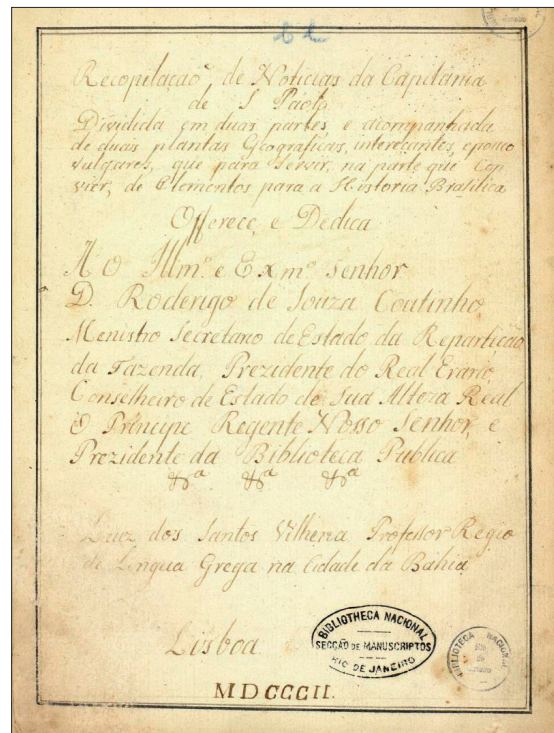 Recopilaçaõ de Noticias da Capitania
de S Paolo
Dividida em duas partes e acompanhada
de duas plantas Geograficas, interecantes, e pouco
vulgares, que para servir, na parte que con
vier, de Elementos para a Historia Brasilica
Offerece, e Dedica
A O Illmº. e Exmº. Senhor
D. Roderigo de Souza Coutinho
Menistro Secretario de Estado da Repartição
da Fazenda, Prezidente do Real Erario,
Conselheiro de Estado de Sua Alteza Real
O Principe Regente Nosso Senhor, e
Prezidente da Biblioteca Publica
&ª &ª &ª
Luiz dos Santos Vilhena Professor Regio
de Lingua Grega na Cidade da Bahia
Lisboa
BIBLIOTHECA NACIONAL
SECCÃO DE MANUSCRIPTOS
RIO DE JANEIRO
BIBLIOTECA NACIONAL
MDCCCII.